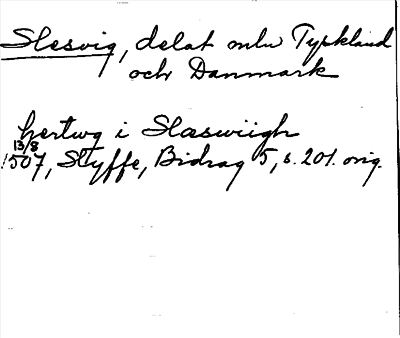 Slesvig, delat mln Tyskland
och Danmark
hertwg i Slæswiigh
13/8
1507, Styffe, Bidrag 5, s. 201. orig.